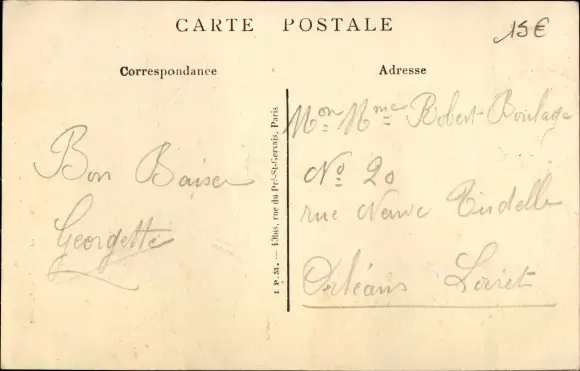 CARTE POSTALE
15€
Correspondance
Adresse
Mon Mme Robert Boulage
No 20
rue Neuve Tudelle
Orléans Loiret
Bon Baiser
Georgette
I P.M. — 43bis, rue du Pré-St-Gervais, Paris